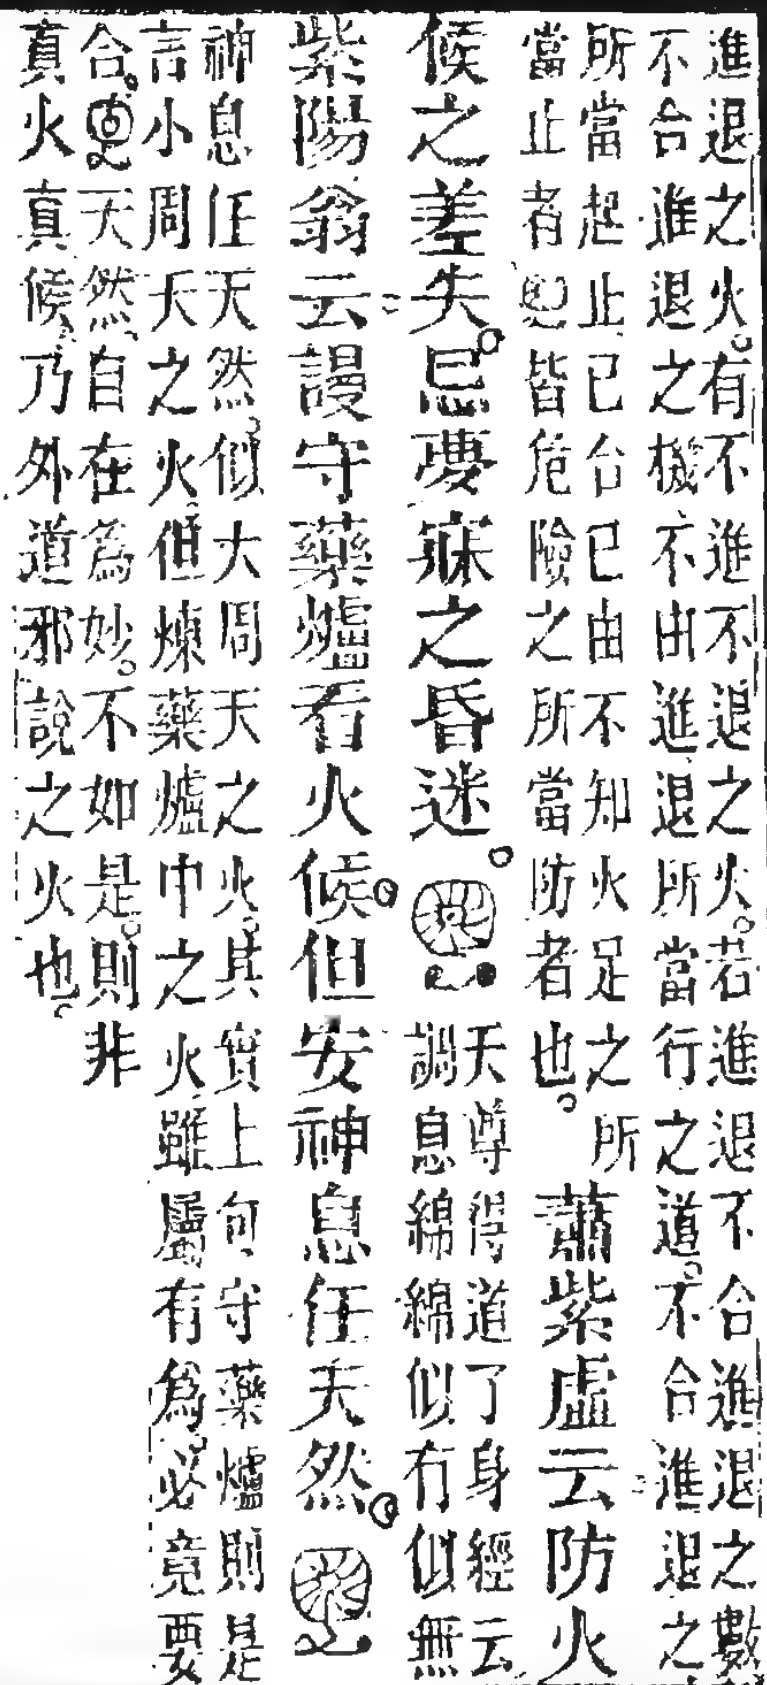 進退之火有不進不退之火若進退不合進退之數
不合進退之機不由進退所當行之道不合進退之
所當起止已合已由不知火足之所
當止者皆危險之所當防者也
蕭紫虛云防火
候之差失忌夢寐之昏迷
天尊得道了身經云
調息綿綿似有似無
紫陽翁云謾守藥爐看火候但安神息任天然
神息任天然似大周天之火其實上句守藥爐則是
言小周天之火但煉藥爐中之火雖屬有為必竟要
合天然自在為妙不如是則非
真火真候乃外道邪說之火也